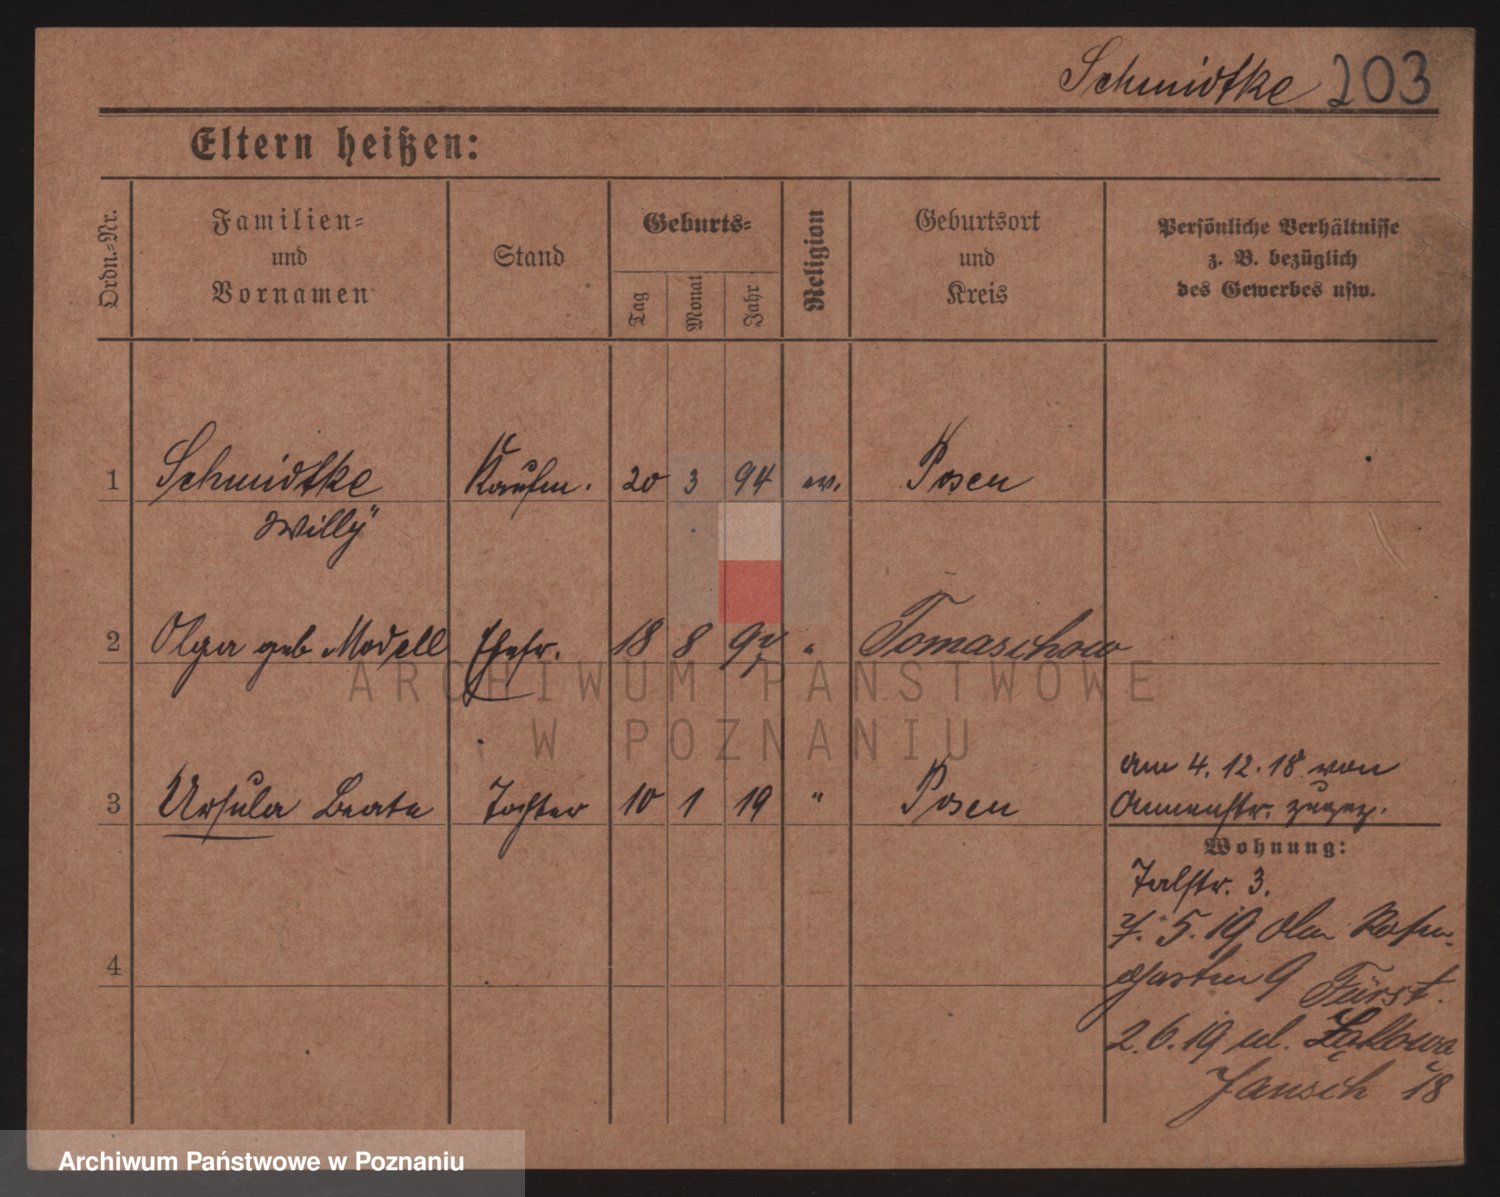 Schmidtke 203
Eltern heißen:
Ordn.-Nr.
Familien-
und
Vornamen
Stand
Geburts-
Tag
Monat
Jahr
Religion
Geburtsort
und
Kreis
Persönliche Verhältnisse
z. B. bezüglich
des Gewerbes usw.
1 Schmidtke Kaufm. 20 3 94 ev. Posen
Willy
2 Olga geb Modell Ehefr. 18 8 " Tomaschow
ARCHIWUM PAŃSTWOWE
W POZNANIU
am 4. 12. 18 von
3 Ursula Beate Tochter 10 1 19 " Posen Annenstr. zugez.
Wohnung:
Talstr. 3.
7. 5. 19 Am Rosen-
4 garten 9 Fürst.
2. 6. 19 ul. Łąkowa
Jansch 18
Archiwum Państwowe w Poznaniu